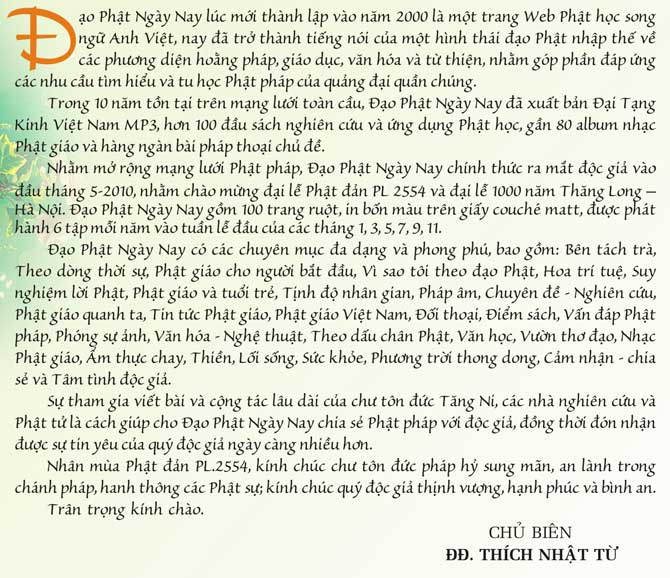 Đạo Phật Ngày Nay lúc mới thành lập vào năm 2000 là một trang Web Phật học song
ngữ Anh Việt, nay đã trở thành tiếng nói của một hình thái đạo Phật nhập thế về
các phương diện hoằng pháp, giáo dục, văn hóa và từ thiện, nhằm góp phần đáp ứng
các nhu cầu tìm hiểu và tu học Phật pháp của quảng đại quần chúng.
Trong 10 năm tồn tại trên mạng lưới toàn cầu, Đạo Phật Ngày Nay đã xuất bản Đại Tạng
Kinh Việt Nam MP3, hơn 100 đầu sách nghiên cứu và ứng dụng Phật học, gần 80 album nhạc
Phật giáo và hàng ngàn bài pháp thoại chủ đề.
Nhằm mở rộng mạng lưới Phật pháp, Đạo Phật Ngày Nay chính thức ra mắt độc giả vào
đầu tháng 5-2010, nhằm chào mừng đại lễ Phật đản PL 2554 và đại lễ 1000 năm Thăng Long –
Hà Nội. Đạo Phật Ngày Nay gồm 100 trang ruột, in bốn màu trên giấy couché matt, được phát
hành 6 tập mỗi năm vào tuần lễ đầu của các tháng 1, 3, 5, 7, 9, 11.
Đạo Phật Ngày Nay có các chuyên mục đa dạng và phong phú, bao gồm: Bên tách trà,
Theo dòng thời sự, Phật giáo cho người bắt đầu, Vì sao tôi theo đạo Phật, Hoa trí tuệ, Suy
nghiệm lời Phật, Phật giáo và tuổi trẻ, Tịnh độ nhân gian, Pháp âm, Chuyên đề - Nghiên cứu,
Phật giáo quanh ta, Tin tức Phật giáo, Phật giáo Việt Nam, Đối thoại, Điểm sách, Vấn đáp Phật
pháp, Phóng sự ảnh, Văn hóa - Nghệ thuật, Theo dấu chân Phật, Văn học, Vườn thơ đạo, Nhạc
Phật giáo, Ẩm thực chay, Thiền, Lối sống, Sức khỏe, Phương trời thong dong, Cảm nhận - chia
sẻ và Tâm tình độc giả.
Sự tham gia viết bài và cộng tác lâu dài của chư tôn đức Tăng Ni, các nhà nghiên cứu và
Phật tử là cách giúp cho Đạo Phật Ngày Nay chia sẻ Phật pháp với độc giả, đồng thời đón nhận
được sự tin yêu của quý độc giả ngày càng nhiều hơn.
Nhân mùa Phật đản PL.2554, kính chúc chư tôn đức pháp hỷ sung mãn, an lành trong
chánh pháp, hanh thông các Phật sự; kính chúc quý độc giả thịnh vượng, hạnh phúc và bình an.
Trân trọng kính chào.
CHỦ BIÊN
ĐĐ. THÍCH NHẬT TỪ